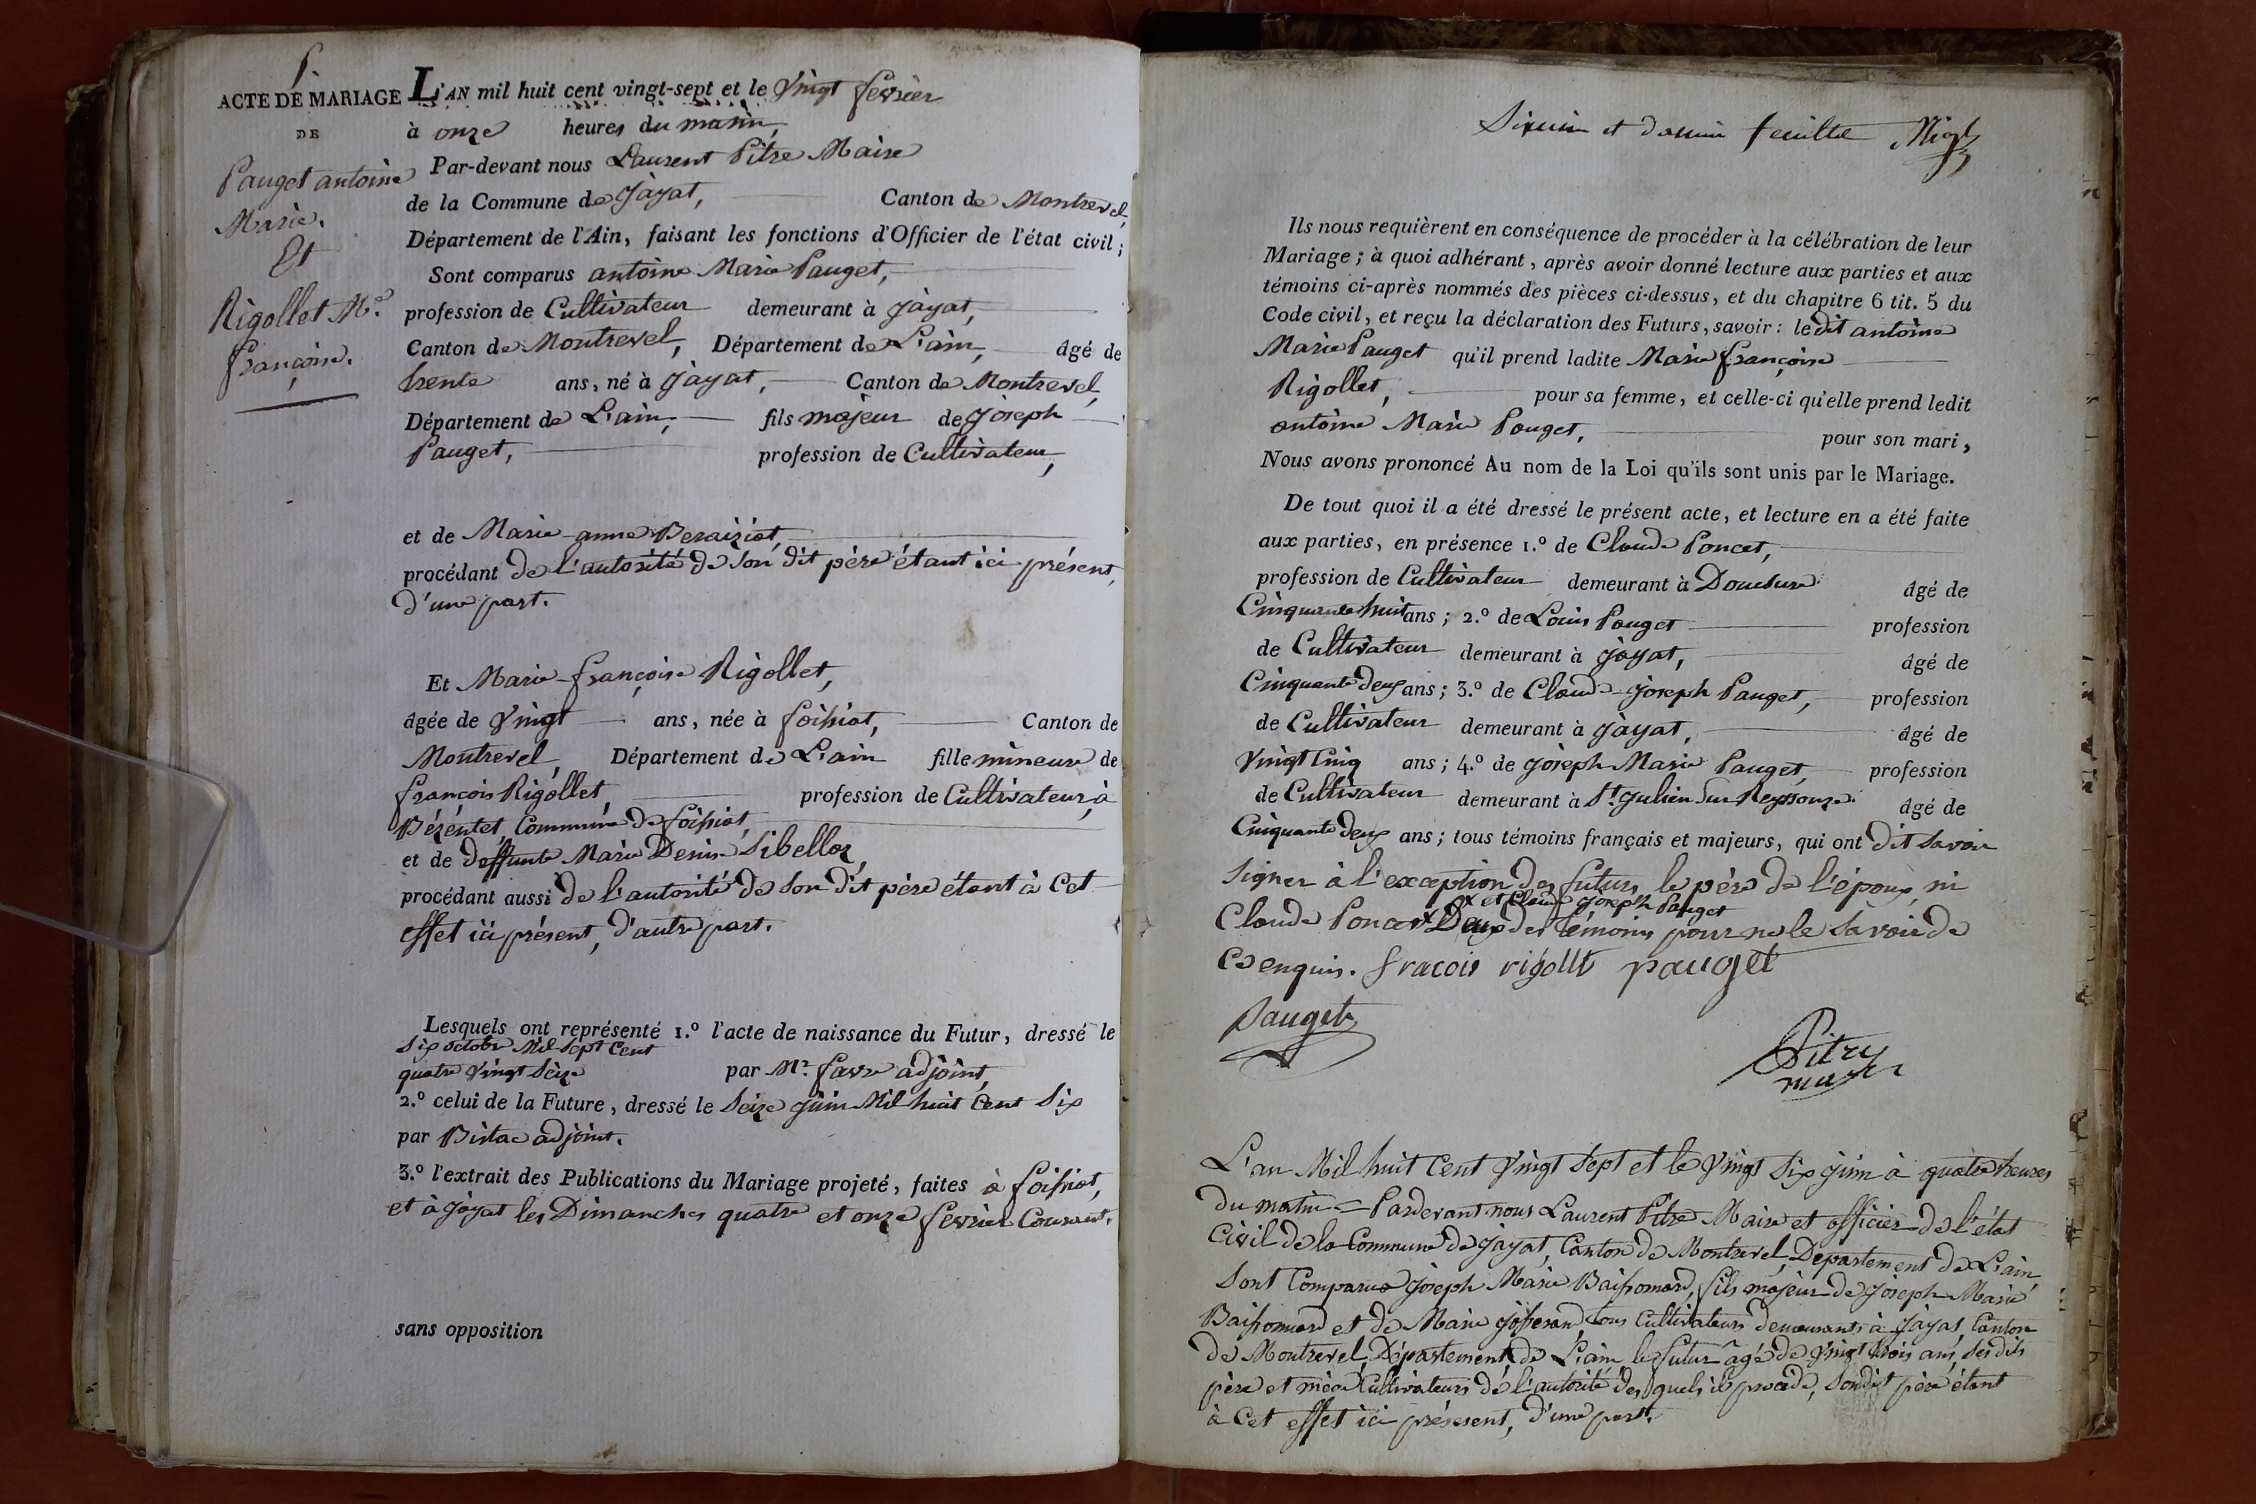 P.
ACTE DE MARIAGE
DE
Pauget antoine
Marie.
Et
Rigollet Mie.
françoise.
L'AN mil huit cent vingt-sept et le vingt fevrier
à onze heures du matin,
Par-devant nous Laurent Pitre Maire
de la Commune de Jayat, Canton de Montrevel,
Département de l'Ain, faisant les fonctions d'Officier de l'état civil;
Sont comparus antoine Marie Pauget,
profession de Cultivateur demeurant à Jayat,
Canton de Montrevel, Département de L'ain, âgé de
trente ans, né à Jayat, Canton de Montrevel,
Département de L'ain, fils majeur de joseph
Pauget, profession de Cultivateur,
et de Marie anne Beraiziat,
procédant de l'autorité de son dit père étant ici présent,
d'une part.
Et Marie françoise Rigollet,
âgée de vingt ans, née à foissiat, Canton de
Montrevel, Département de L'ain fille mineure de
françois Rigollet, profession de Cultivateur, à
Bézéntet, Commune de foissiat,
et de deffunte Marie Denise Sibellas,
procédant aussi de l'autorité de son dit père étant à Cet
effet ici présent, d'autre part.
Lesquels ont représenté 1.º l'acte de naissance du Futur, dressé le
Six octobre Mil Sept Cent
quatre vingt Seize par Mr. favre adjoint,
2.º celui de la Future, dressé le Seize juin Mil huit Cent Six
par adjoint.
3.º l'extrait des Publications du Mariage projeté, faites à foissiat,
et à Jayat les Dimanches quatre et onze fevrier Courant.
sans opposition
et feuille
Ils nous requièrent en conséquence de procéder à la célébration de leur
Mariage; à quoi adhérant, après avoir donné lecture aux parties et aux
témoins ci-après nommés des pièces ci-dessus, et du chapitre 6 tit. 5 du
Code civil, et reçu la déclaration des Futurs, savoir: ledit antoine
Marie Pauget qu'il prend ladite Marie françoise
Rigollet, pour sa femme, et celle-ci qu'elle prend ledit
antoine Marie Pouget, pour son mari,
Nous avons prononcé Au nom de la Loi qu'ils sont unis par le Mariage.
De tout quoi il a été dressé le présent acte, et lecture en a été faite
aux parties, en présence 1.º de Claude Poncet,
profession de Cultivateur demeurant à Doucture âgé de
Cinquante huit ans; 2.º de Louis Pouget profession
de Cultivateur demeurant à Jayat, âgé de
Cinquante deux ans; 3.º de Claude joseph Pauget, profession
de Cultivateur demeurant à Jayat, âgé de
vingt Cinq ans; 4.º de joseph Marie Pauget, profession
de Cultivateur demeurant à St. julien Sur Reyssouze. âgé de
Cinquante deux ans; tous témoins français et majeurs, qui ont dit savoir
signer à l'exception des futurs, le père de l'époux, ni
x et Claude joseph Pauget
Claude Poncet x Deux des témoins pour ne le savoir de
Ce enquis. fracois rigollt pauget
Pauget
Pitre
maire
L'an Mil huit Cent vingt Sept et le vingt Six juin à quatre heures
du matin = Pardevant nous Laurent Pitre Maire et officier de l'état
Civil de la Commune de Jayat, Canton de Montrevel, Departement de L'ain,
Sont Comparus joseph Marie Baissomard, fils majeur de joseph Marie
Baissomard et de Marie josserand, tous Cultivateurs demeurants à Jayat, Canton
de Montrevel, Département de L'ain, le futur âgé de vingt trois ans, Ses dits
père et mère Cultivateurs de l'autorité desquels il procède, Son dit père étant
à Cet effet ici présent, d'une part.